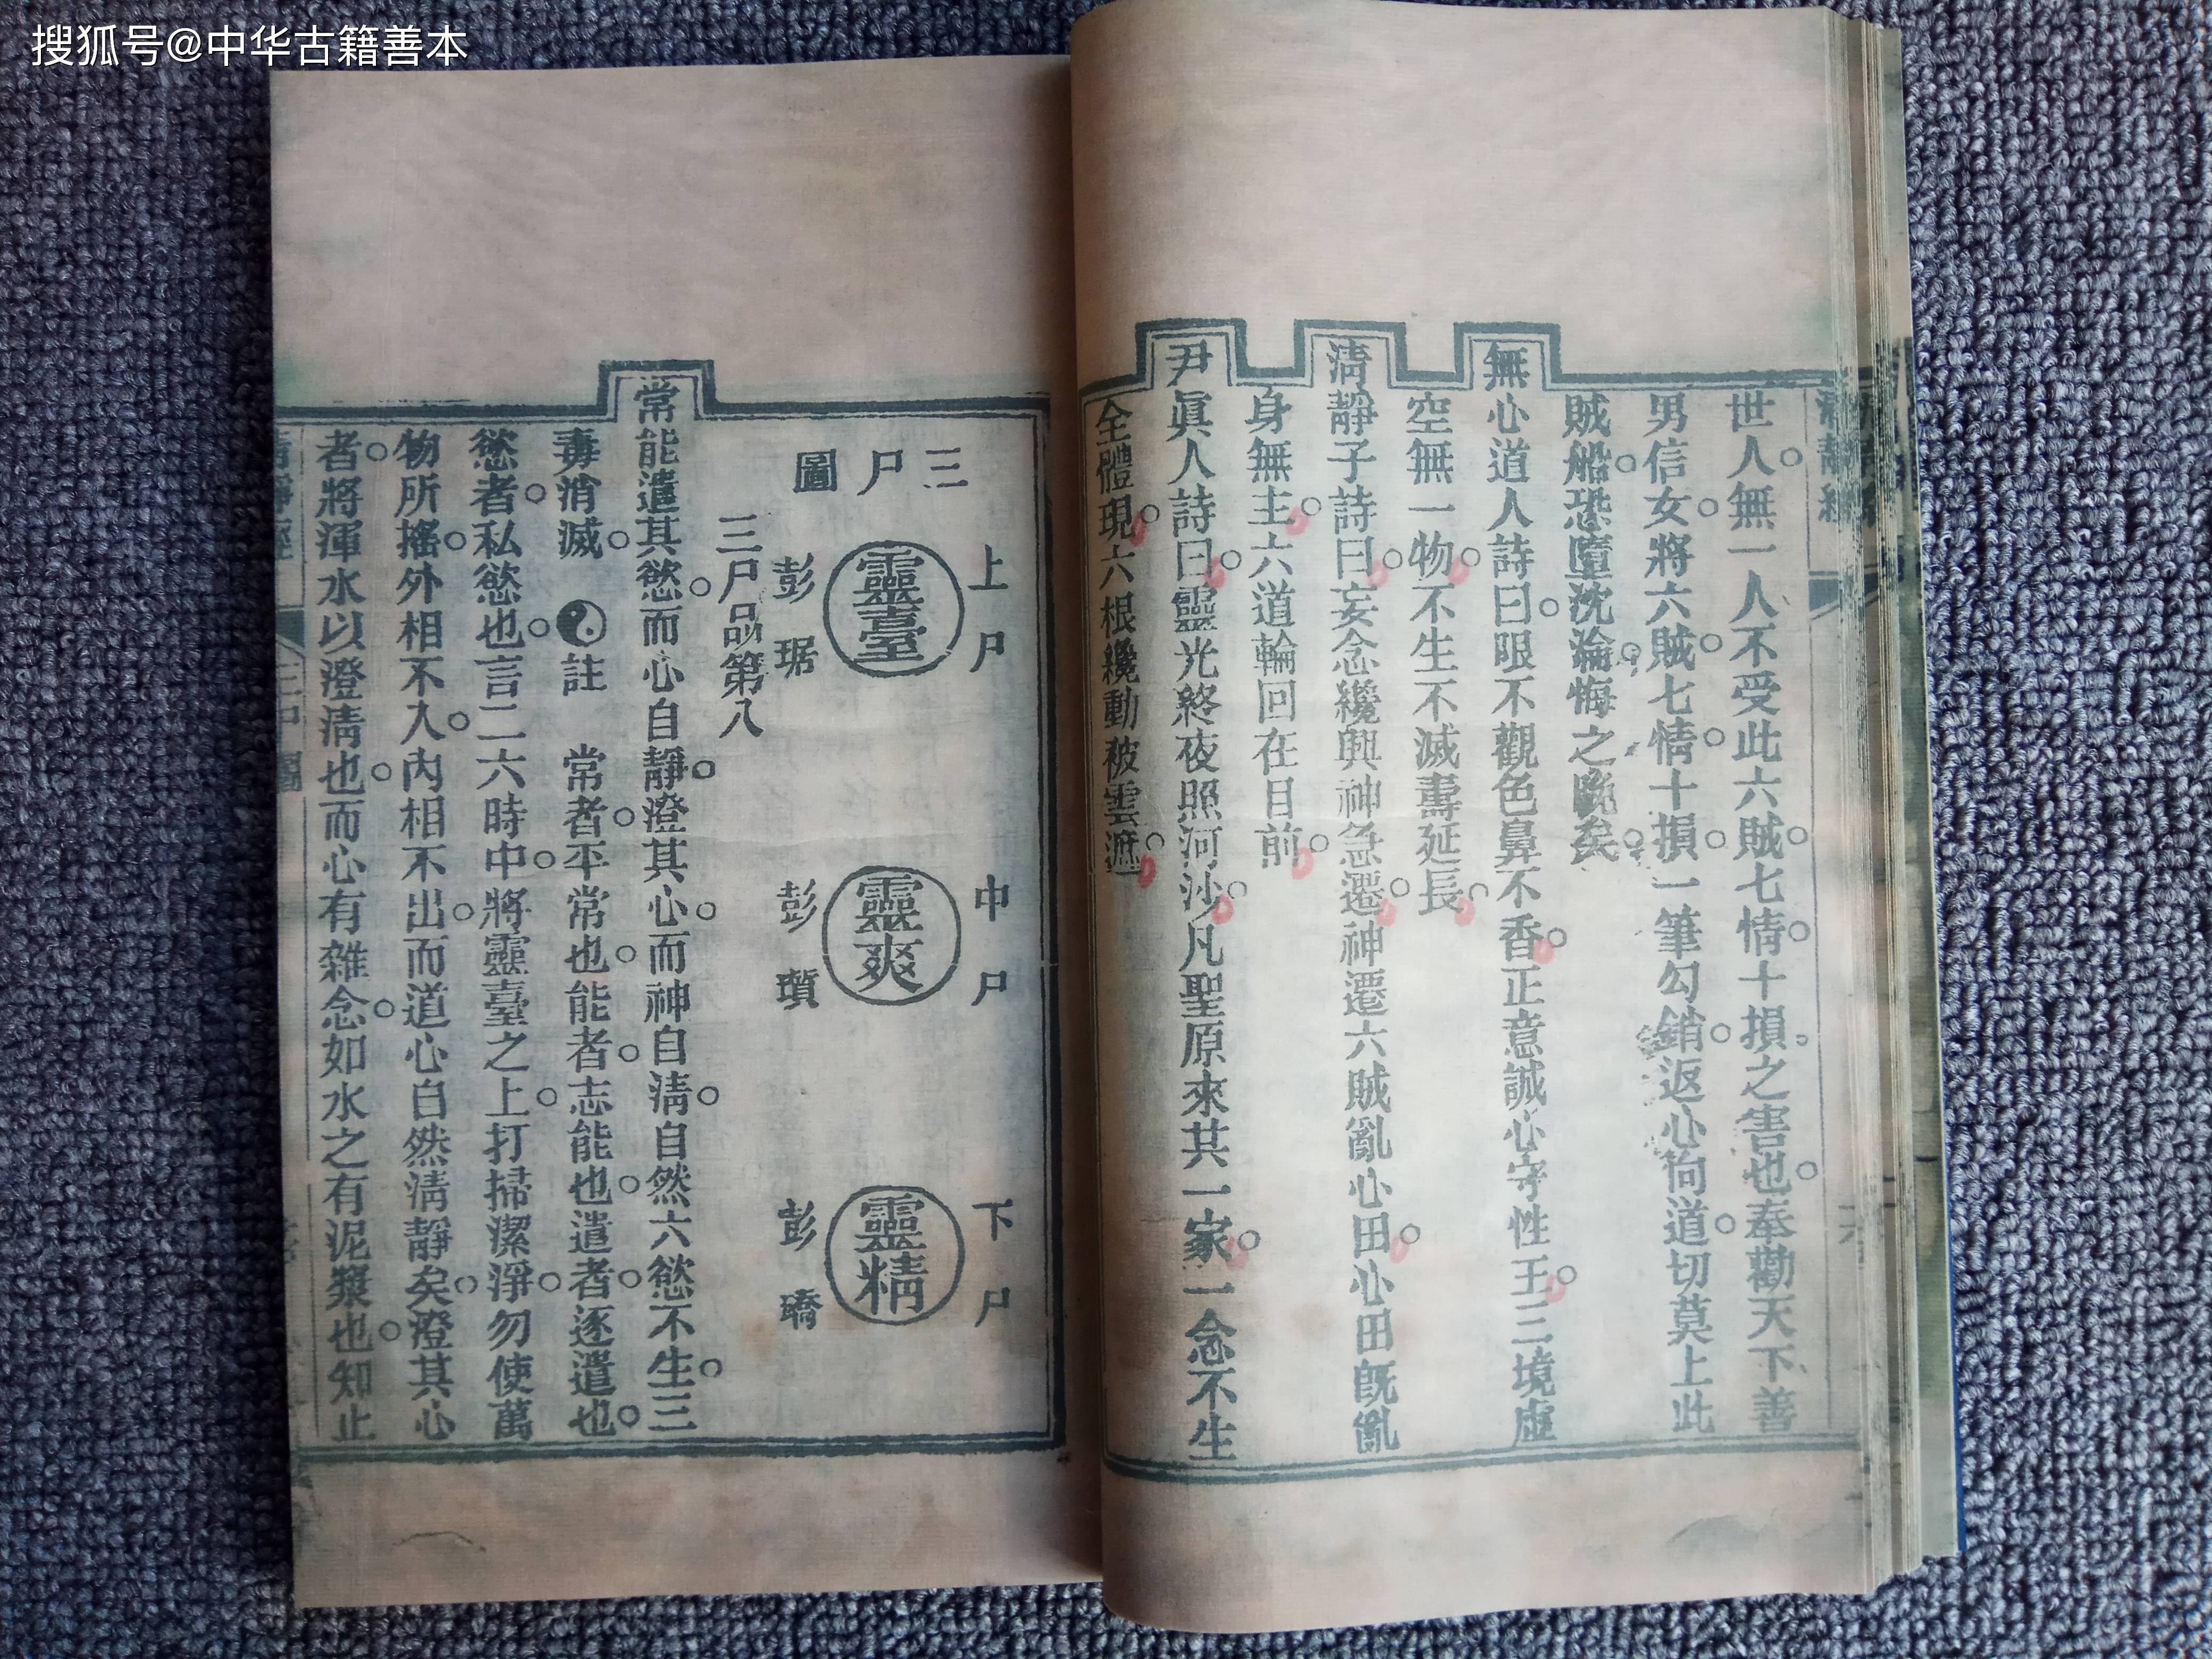 搜狐号@中华古籍善本
世人無一人不受此六賊七情十損之害也奉勸天下善
男信女將六賊七情十損一筆勾銷返心向道切莫上此
賊船恐墮沈淪悔之晚矣
無心道人詩曰眼不觀色鼻不香正意誠心守性王三境虛
空無一物不生不滅壽延長
清靜子詩曰妄念纔興神急遷神遷六賊亂心田心田既亂
身無主六道輪回在目前
尹眞人詩曰靈光終夜照河沙凡聖原來共一家一念不生
全體現六根纔動被雲遮
三尸圖
上尸
靈臺
彭琚
中尸
靈爽
彭瓆
下尸
靈精
彭矯
三尸品第八
常能遣其慾而心自靜澄其心而神自清自然六慾不生三
毒消滅 註 常者平常也能者志能也遣者逐遣也
慾者私慾也言二六時中將靈臺之上打掃潔淨勿使萬
物所搖外相不入內相不出而道心自然清靜矣澄其心
者將渾水以澄清也而心有雜念如水之有泥漿也知止